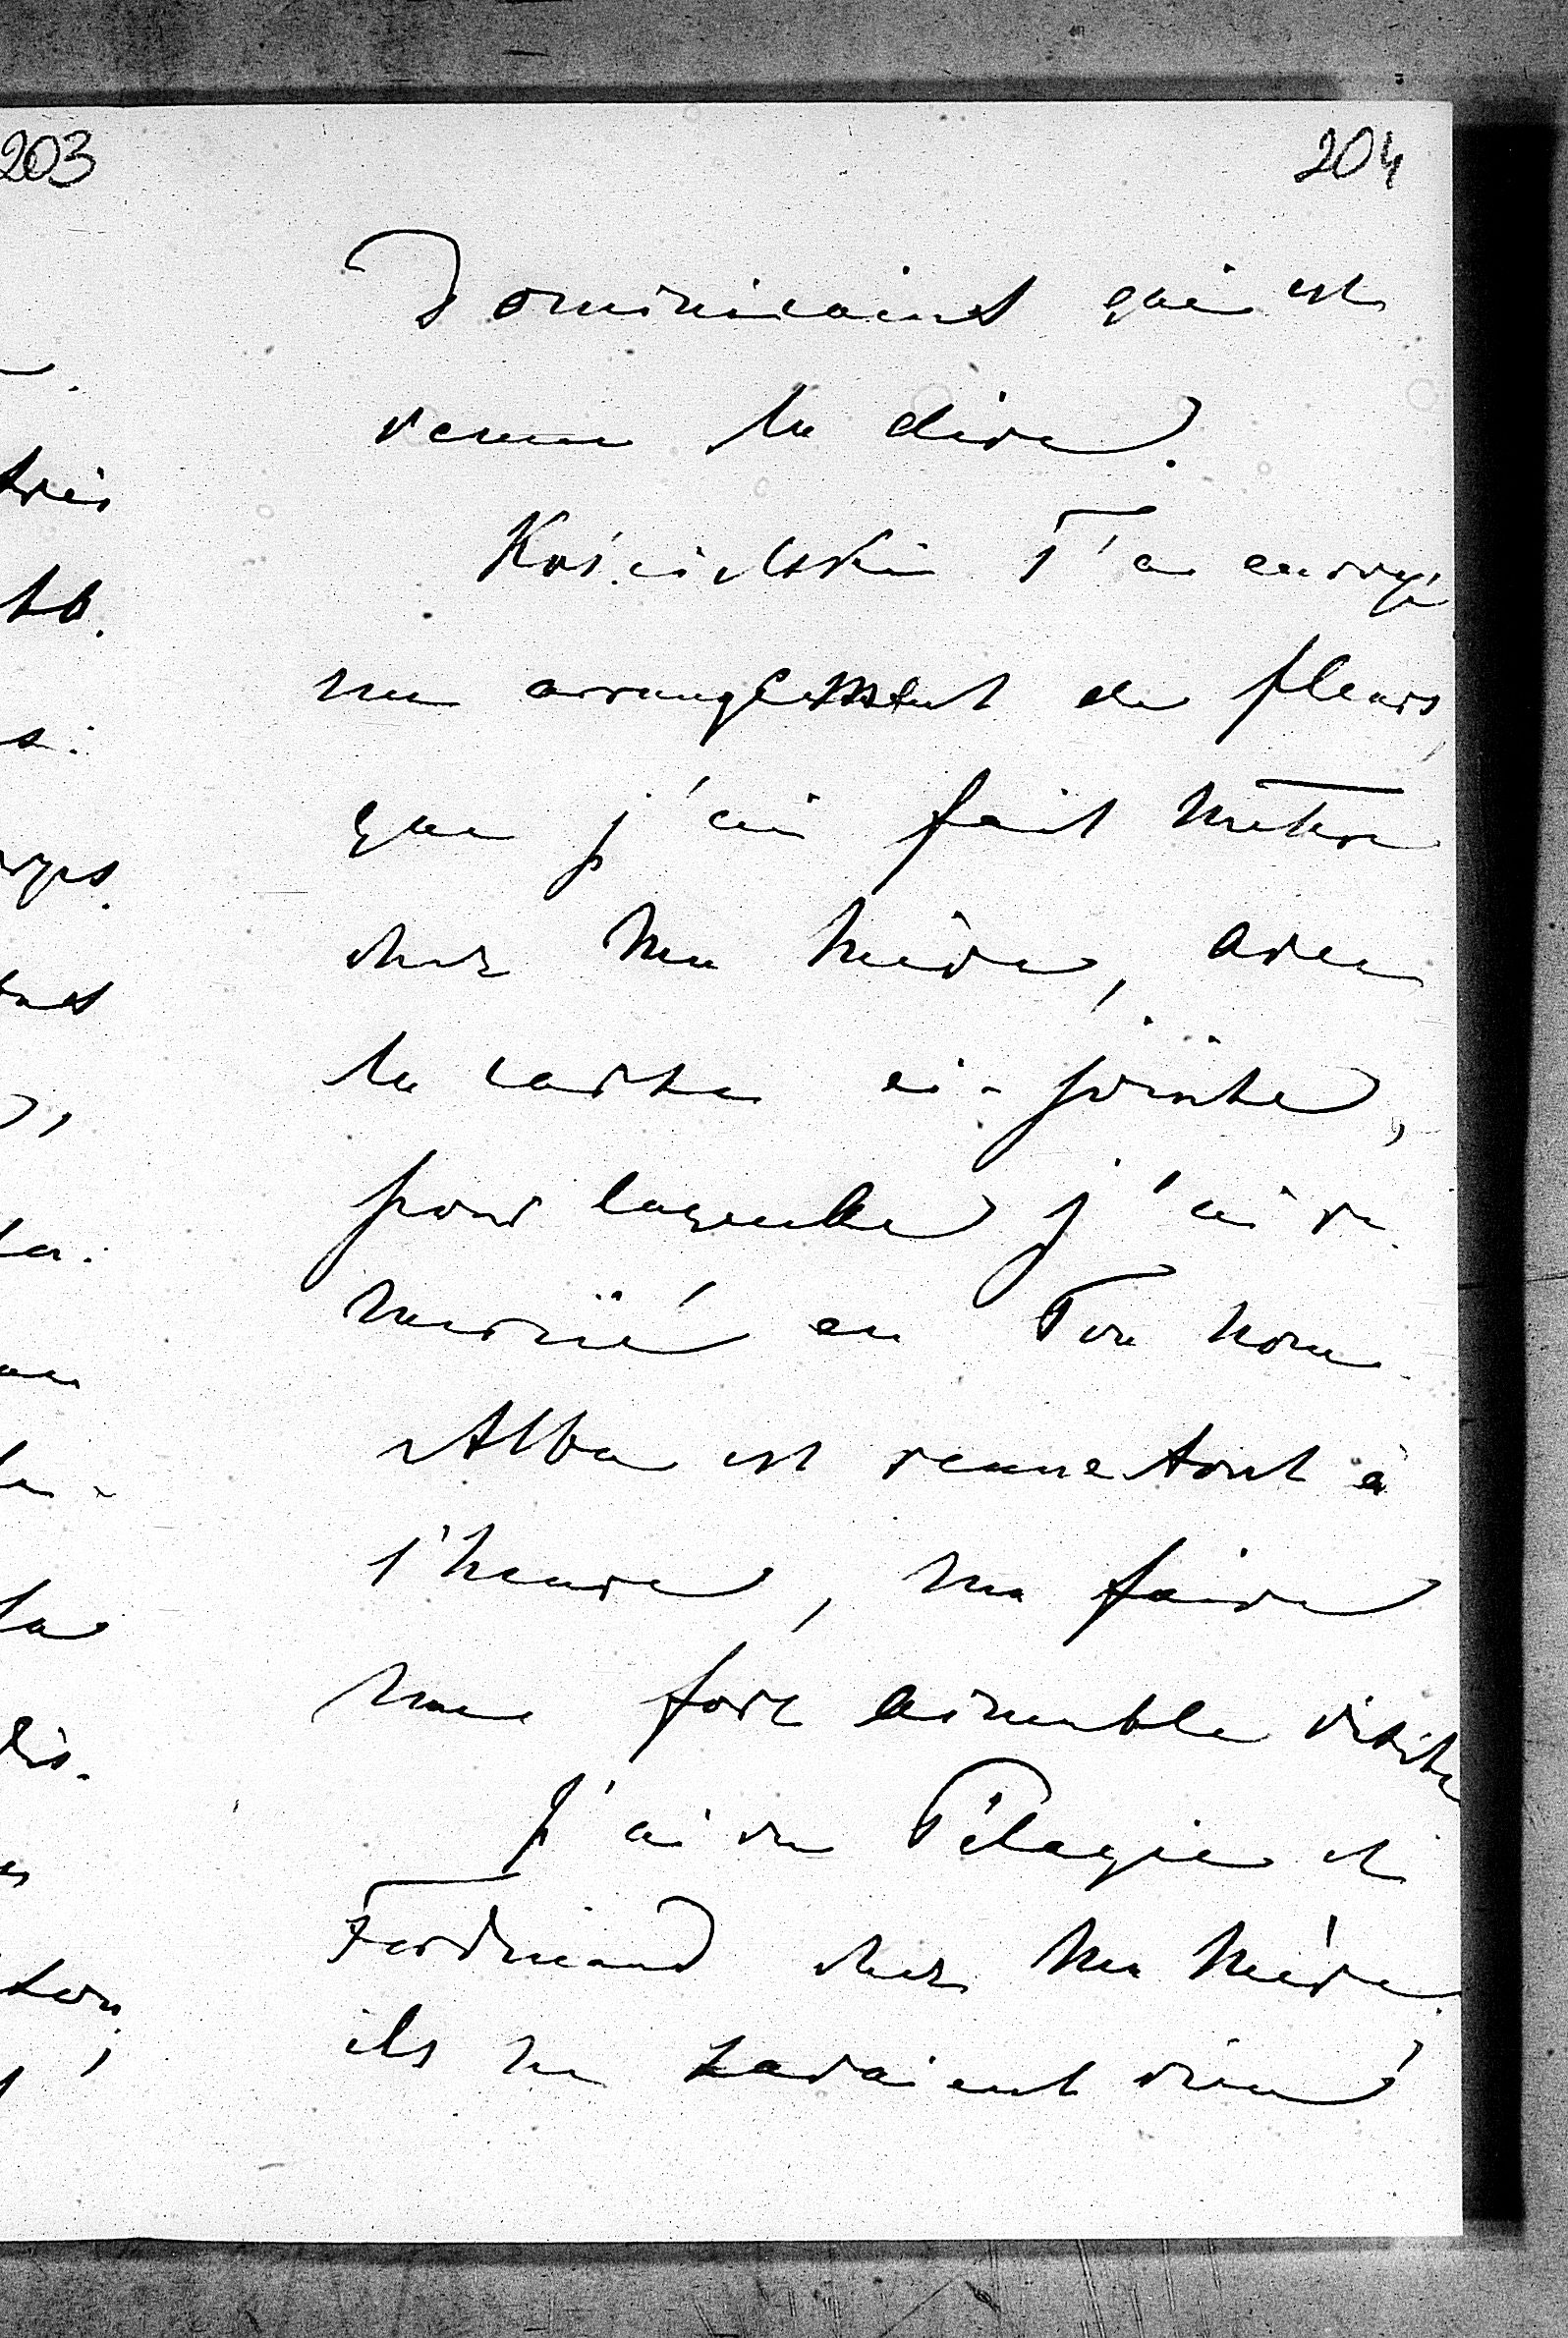 203
204
Dominicains qui est
venu la dire.
Kościelski T'a envoyé
un arrangement de fleurs,
que j'ai fait mettre
chez ma mère, avec
la carte ci-jointe,
pour laquelle j'ai re-
mercié en Ton nom.
Alba est venue tout à
l'heure, me faire
une fort aimable visite
J'ai vu Pélagie et
Ferdinand chez ma mère.
ils ne savaient rien